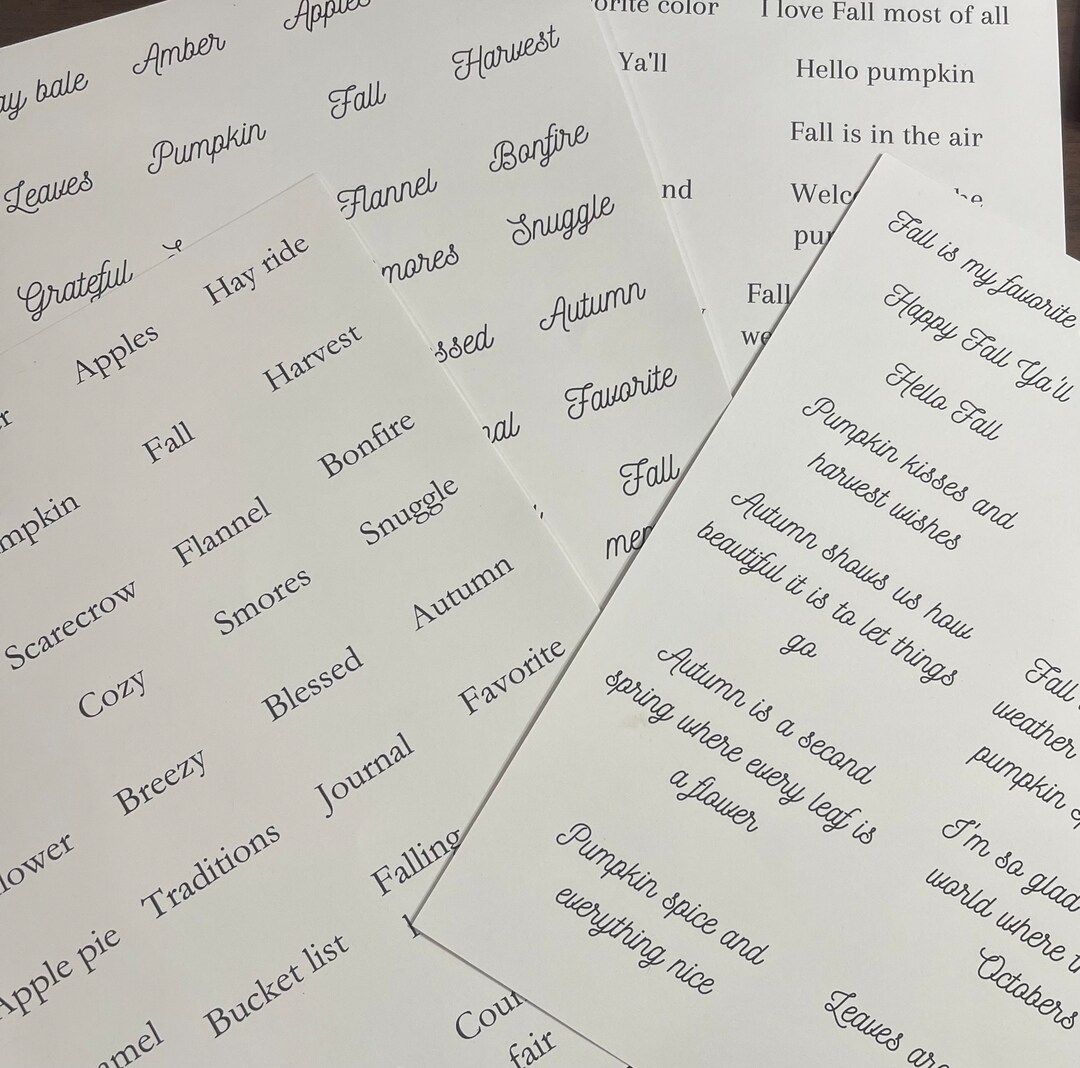 Apples
Amber
ay bale
Harvest
Fall
Pumpkin
Leaves
Bonfire
Flannel
Grateful
Snuggle
mores
Autumn
ssed
Favorite
nal
Fall
mer
orite color
I love Fall most of all
Ya'll
Hello pumpkin
Fall is in the air
nd
Welc
pu
Fall
we
Hay ride
Apples
Harvest
r
Fall
Bonfire
mpkin
Flannel
Snuggle
Scarecrow
Smores
Autumn
Cozy
Blessed
Favorite
Breezy
Journal
lower
Traditions
Falling
Apple pie
Bucket list
amel
Coun
fair
Fall is my favorite
Happy Fall Ya'll
Hello Fall
Pumpkin kisses and
harvest wishes
Autumn shows us how
beautiful it is to let things
go
Autumn is a second
spring where every leaf is
a flower
Pumpkin spice and
everything nice
Fall
weather
pumpkin
I'm so glad
world where
Octobers
Leaves are